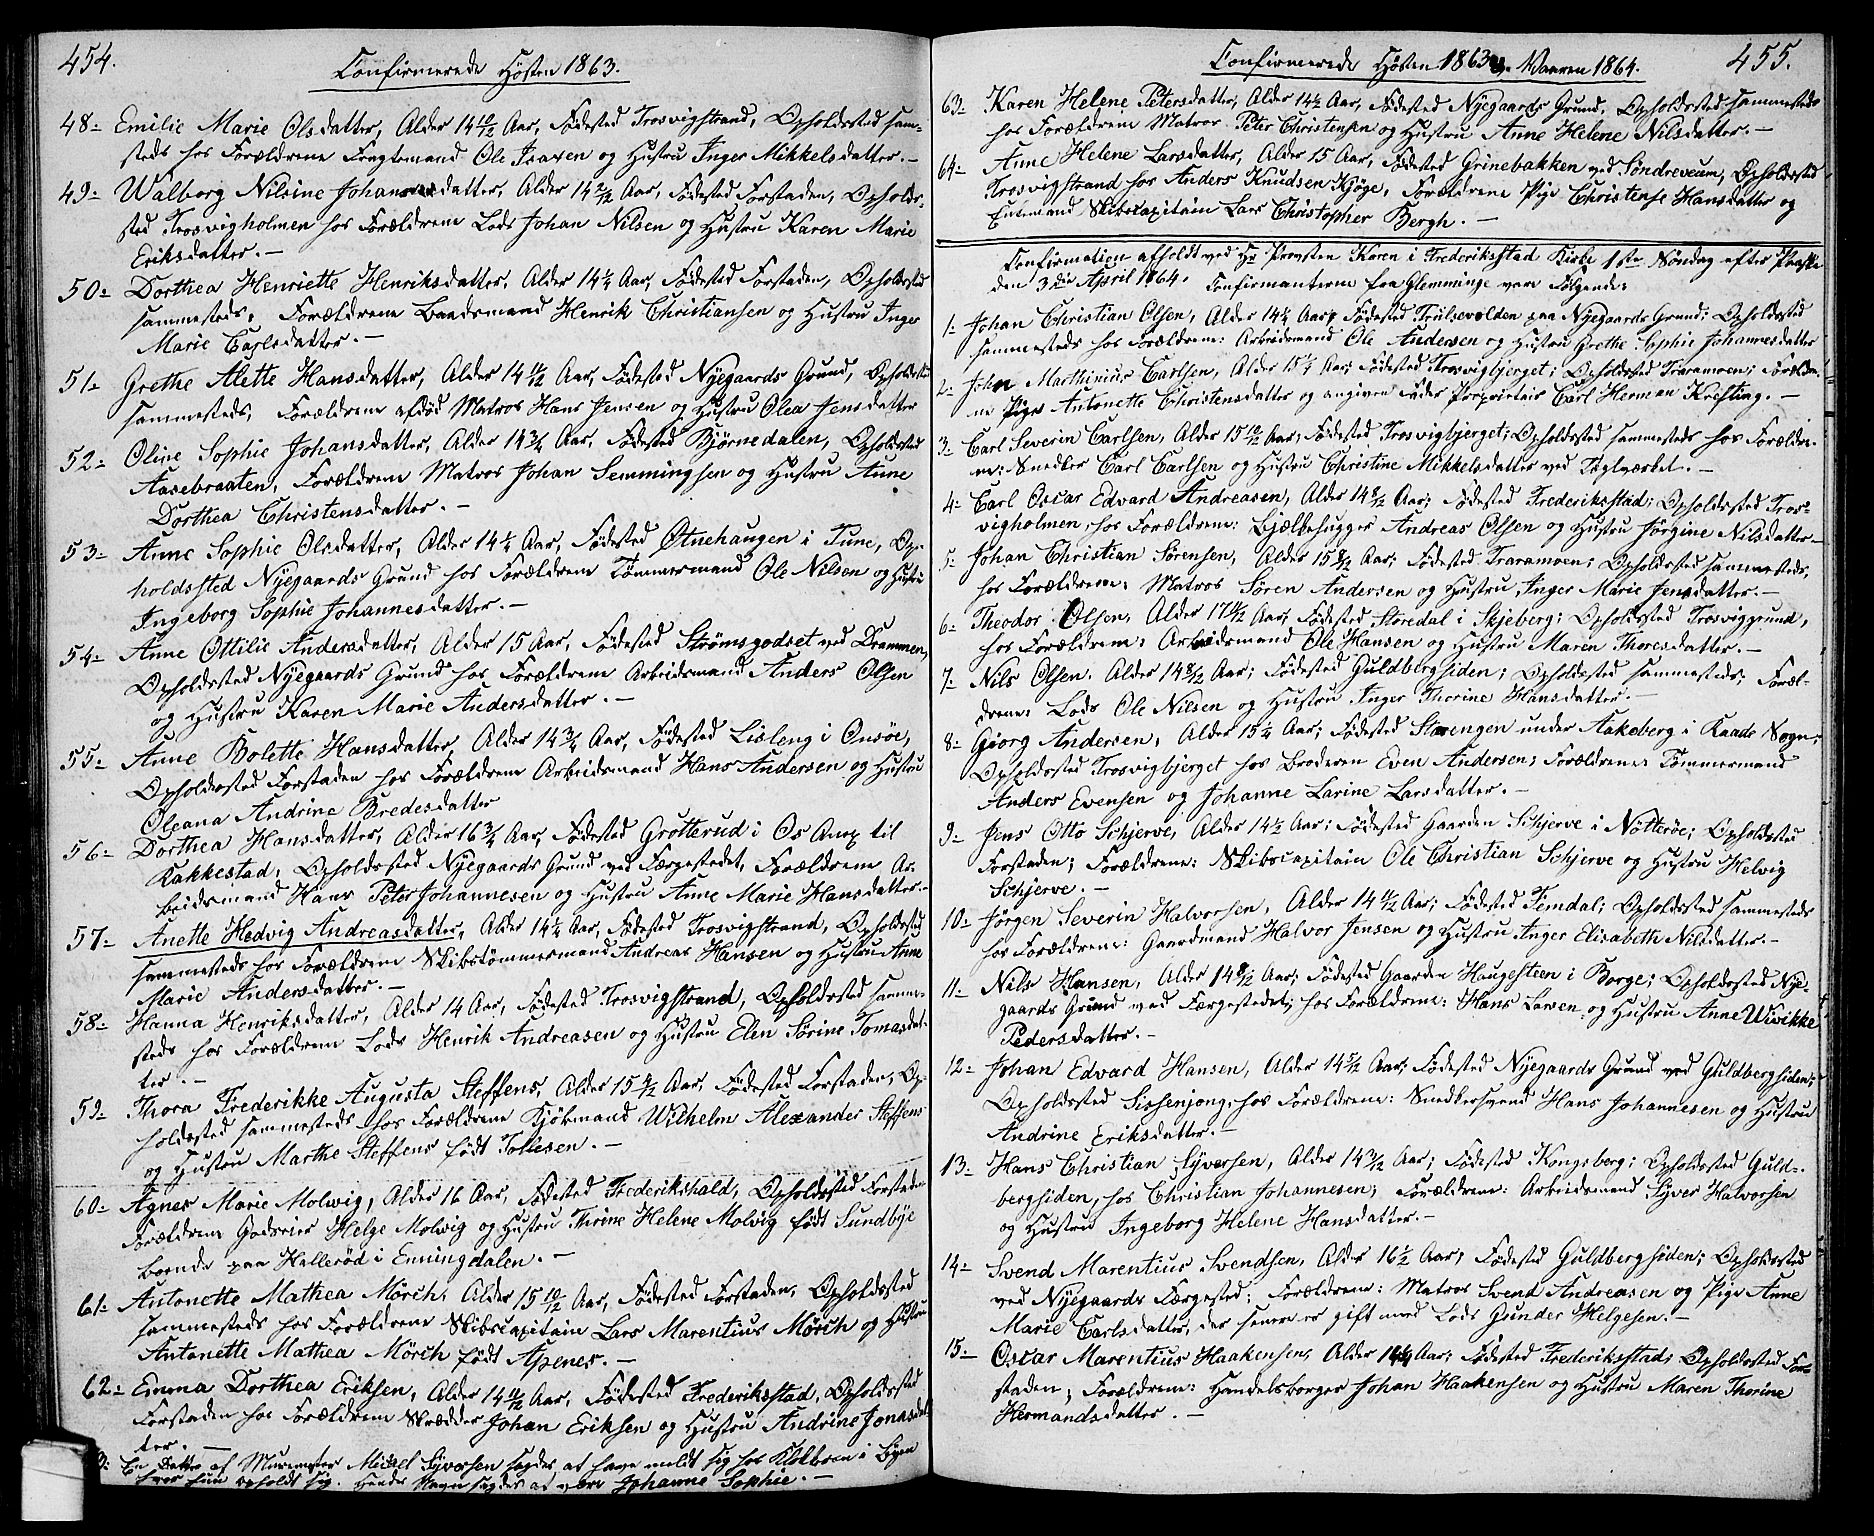 454.
Confirmerede Høsten 1863.
48= Emilie Marie Olsdatter, Alder 14 10/12 Aar, Fødested Trosvigstrand, Opholdssted sam-
steds hos Forældrene Fragtemand Ole Isaxen og Hustru Inger Mikkelsdatter.-
49= Walborg Nilsine Johansdatter, Alder 14 2/12 Aar, Fødested Forstaden, Opholds-
sted Trosvigholmen hos Forældrene Lods Johan Nilsen og Hustru Karen Marie
Eriksdatter.-
50= Dorthea Henriette Henriksdatter, Alder 14 1/4 Aar, Fødested Forstaden, Opholdssted
sammesteds, Forældrene Baadsmand Henrik Christiansen og Hustru Inger
Marie Carlsdatter.-
51= Grethe Alette Hansdatter, Alder 14 11/12 Aar, Fødested Nyegaards Grund, Opholdssted
sammesteds, Forældrene afdød Matros Hans Jensen og Hustru Olea Jensdatter
52= Oline Sophie Johansdatter, Alder 14 3/4 Aar, Fødested Bjørnedalen, Opholdssted
Aasebraaten, Forældrene Matros Johan Semmingsen og Hustru Anne
Dorthea Christensdatter.-
53= Anne Sophie Olsdatter, Alder 14 1/4 Aar, Fødested Ötnehaugen i Tune, Op-
holdssted Nyegaards Grund hos Forældrene Tømmermand Ole Nilsen og Hustru
Ingeborg Sophie Johannesdatter.-
54= Anne Ottilie Andersdatter, Alder 15 Aar, Fødested Strømsgodset ved Drammen,
Opholdssted Nyegaards Grund hos Forældrene Arbeidsmand Anders Olsen
og Hustru Karen Marie Andersdatter.-
55= Anne Bolette Hansdatter, Alder 14 3/4 Aar, Fødested Lisleng i Onsøe,
Opholdssted Forstaden hos Forældrene Arbeidsmand Hans Andersen og Hustru
Oleana Andrine Bredesdatter
56= Dorthea Hansdatter, Alder 16 3/4 Aar, Fødested Grotterud i Os Anex til
Rakkestad, Opholdssted Nyegaards Grund ved Færgestedet, Forældrene Ar-
beidsmand Hans Peter Johannesen og Hustru Anne Marie Hansdatter.-
57= Anette Hedvig Andreasdatter, Alder 14 1/4 Aar, Fødested Trosvigstrand, Opholdssted
sammesteds hos Forældrene Skibstømmermand Andreas Hansen og Hustru Anne
Marie Andersdatter.-
58= Hanna Henriksdatter, Alder 14 Aar, Fødested Trosvigstrand, Opholdssted samme-
steds hos Forældrene Lods Henrik Andreasen og Hustru Elen Sørine Tomasdat-
ter.-
59= Thora Frederikke Augusta Steffens, Alder 15 Aar, Fødested Forstaden, Op-
holdssted sammesteds hos Forældrene Kjøbmand Wilhelm Alexander Steffens
og Hustru Marthe Steffens født Tollesen.-
60= Agnes Marie Molwig, Alder 16 Aar, Fødested Frederikshald, Opholdssted Forstaden
Forældrene Godseier Helge Molwig og Hustru Thrine Helene Molvig født Sundbye
boende paa Hallerød i Enningdalen.-
61= Antonette Mathea Mörch, Alder 15 10/12 Aar, Fødested Forstaden, Opholdssted
sammesteds hos Forældrene Skibscapitain Lars Marentius Mörch og Hustru
Antonette Mathea Mörch født Apenes.-
62= Emma Dorthea Eriksen, Alder 14 11/12 Aar, Fødested Frederiksstad, Opholdssted
Forstaden hos Forældrene Skrædder Johan Eriksen og Hustru Andrine Jonasdat-
ter.-
En Datter af Murmester Mickel Syversen sagdes at have meldt sig hos Klokkeren i Byen
hvor hun opholdt sig. Hendes Navn sagdes at være Johanne Sophie.-
455.
Confirmerede Høsten 1863 og Vaaren 1864.
63= Karen Helene Petersdatter, Alder 14 1/2 Aar, Fødested Nyegaards Grund, Opholdssted sammesteds
hos Forældrene Matros Peter Christensen og Hustru Anne Helene Nilsdatter.-
64= Anne Helene Larsdatter, Alder 15 Aar, Fødested Grinebakken ved Søndreveum, Opholdssted
Trosvigstrand hos Anders Knudsen Kjöge, Forældrene Pige Christense Hansdatter og
Enkemand Skibscapitain Lars Christopher Bergh.-
Confirmation afholdt ved Hr Provsten Koren i Frederiksstad Kirke 1ste Søndag efter Paaske
den 3die April 1864. Confirmanterne fra Glemminge vare Følgende:
1= Johan Christian Olsen, Alder 14 1/4 Aar, Fødested Trulsevolden paa Nyegaards Grund; Opholdssted
sammesteds hos Forældrene: Arbeidsmand Ole Andersen og Hustru Grethe Sophie Johannesdatter
2= Johan Marthinius Carlsen, Alder 15 1/4 Aar; Fødested Trosvigbjerget; Opholdssted Traramoen; Forældre-
ne Pige Antonette Christensdatter og angiven Fader Proprietair Carl Herman Krefting.-
3= Carl Severin Carlsen, Alder 15 10/12 Aar; Fødested Trosvigbjerget; Opholdssted sammesteds hos Forældre-
ne: Snedker Carl Carlsen og Hustru Christine Mikkelsdatter ved Teglværket.-
4= Carl Oscar Edvard Andreasen, Alder 14 Aar; Fødested Frederiksstad; Opholdssted Tros-
vigholmen, hos Forældrene: Bjælkehugger Andreas Olsen og Hustru Jörgine Nilsdatter.-
5= Johan Christian Sørensen, Alder 15 8/12 Aar; Fødested Traramoen; Opholdssted sammesteds,
hos Forældrene: Matros Søren Andersen og Hustru Inger Marie Jensdatter.-
6= Theodor Olsen, Alder 17 Aar; Fødested Storedal i Skjeberg; Opholdssted Trosviggrund,
hos Forældrene: Arbeidsmand Ole Hansen og Hustru Maren Thoresdatter.-
7= Nils Olsen, Alder 14 8/12 Aar; Fødested Guldbergsiden; Opholdssted sammesteds; Foræl-
drene: Lods Ole Nilsen og Hustru Inger Thorine Hansdatter.-
8= Georg Andersen, Alder 15 1/4 Aar; Fødested Storengen under Aakeberg i Raade Sogn;
Opholdssted Trosvigbjerget hos Broderen Even Andersen; Forældrene: Tømmermand
Anders Evensen og Johanne Larine Larsdatter.-
9= Jens Otto Schjerve, Alder 14 1/2 Aar; Fødested Gaarden Schjerve i Nötteröe; Opholdssted
Forstaden; Forældrene: Skibscapitain Ole Christian Schjerve og Hustru Helvig
Schjerve.-
10= Jörgen Severin Halvorsen, Alder 14 Aar; Fødested Femdal; Opholdssted sammesteds
hos Forældrene: Gaardmand Halvor Jensen og Hustru Inger Elisabeth Nilsdatter.-
11= Nils Hansen, Alder 14 8/12 Aar; Fødested Gaarden Haugesteen i Borge; Opholdssted Nye-
gaards Grund ved Færgestedet, hos Forældrene: Hans Larsen og Hustru Anne Wivikke
Pedersdatter.-
12= Johan Edvard Hansen, Alder 14 5/12 Aar; Fødested Nyegaards Grund ved Guldbergsiden;
Opholdssted Sissenjong, hos Forældrene: Snedkersvend Hans Johannesen og Hustru
Andrine Eriksdatter.-
13= Hans Christian Syversen, Alder 14 3/12 Aar; Fødested Kongsberg; Opholdssted Guld-
bergsiden, hos Christian Johannesen; Forældrene: Arbeidsmand Syver Halvorsen
og Hustru Ingeborg Helene Hansdatter.-
14= Svend Marentius Svendsen, Alder 16 1/2 Aar; Fødested Guldbergsiden; Opholdssted
ved Nyegaards Færgested; Forældrene: Matros Svend Andreasen og Pige Anne
Marie Carlsdatter, der senere er gift med Lods Gunder Helgesen.-
15= Oscar Marentius Haakensen, Alder 14 1/4 Aar; Fødested Frederiksstad; Opholdssted For-
staden; Forældrene: Handelsborger Johan Haakensen og Hustru Maren Thorine
Hermandsdatter.-